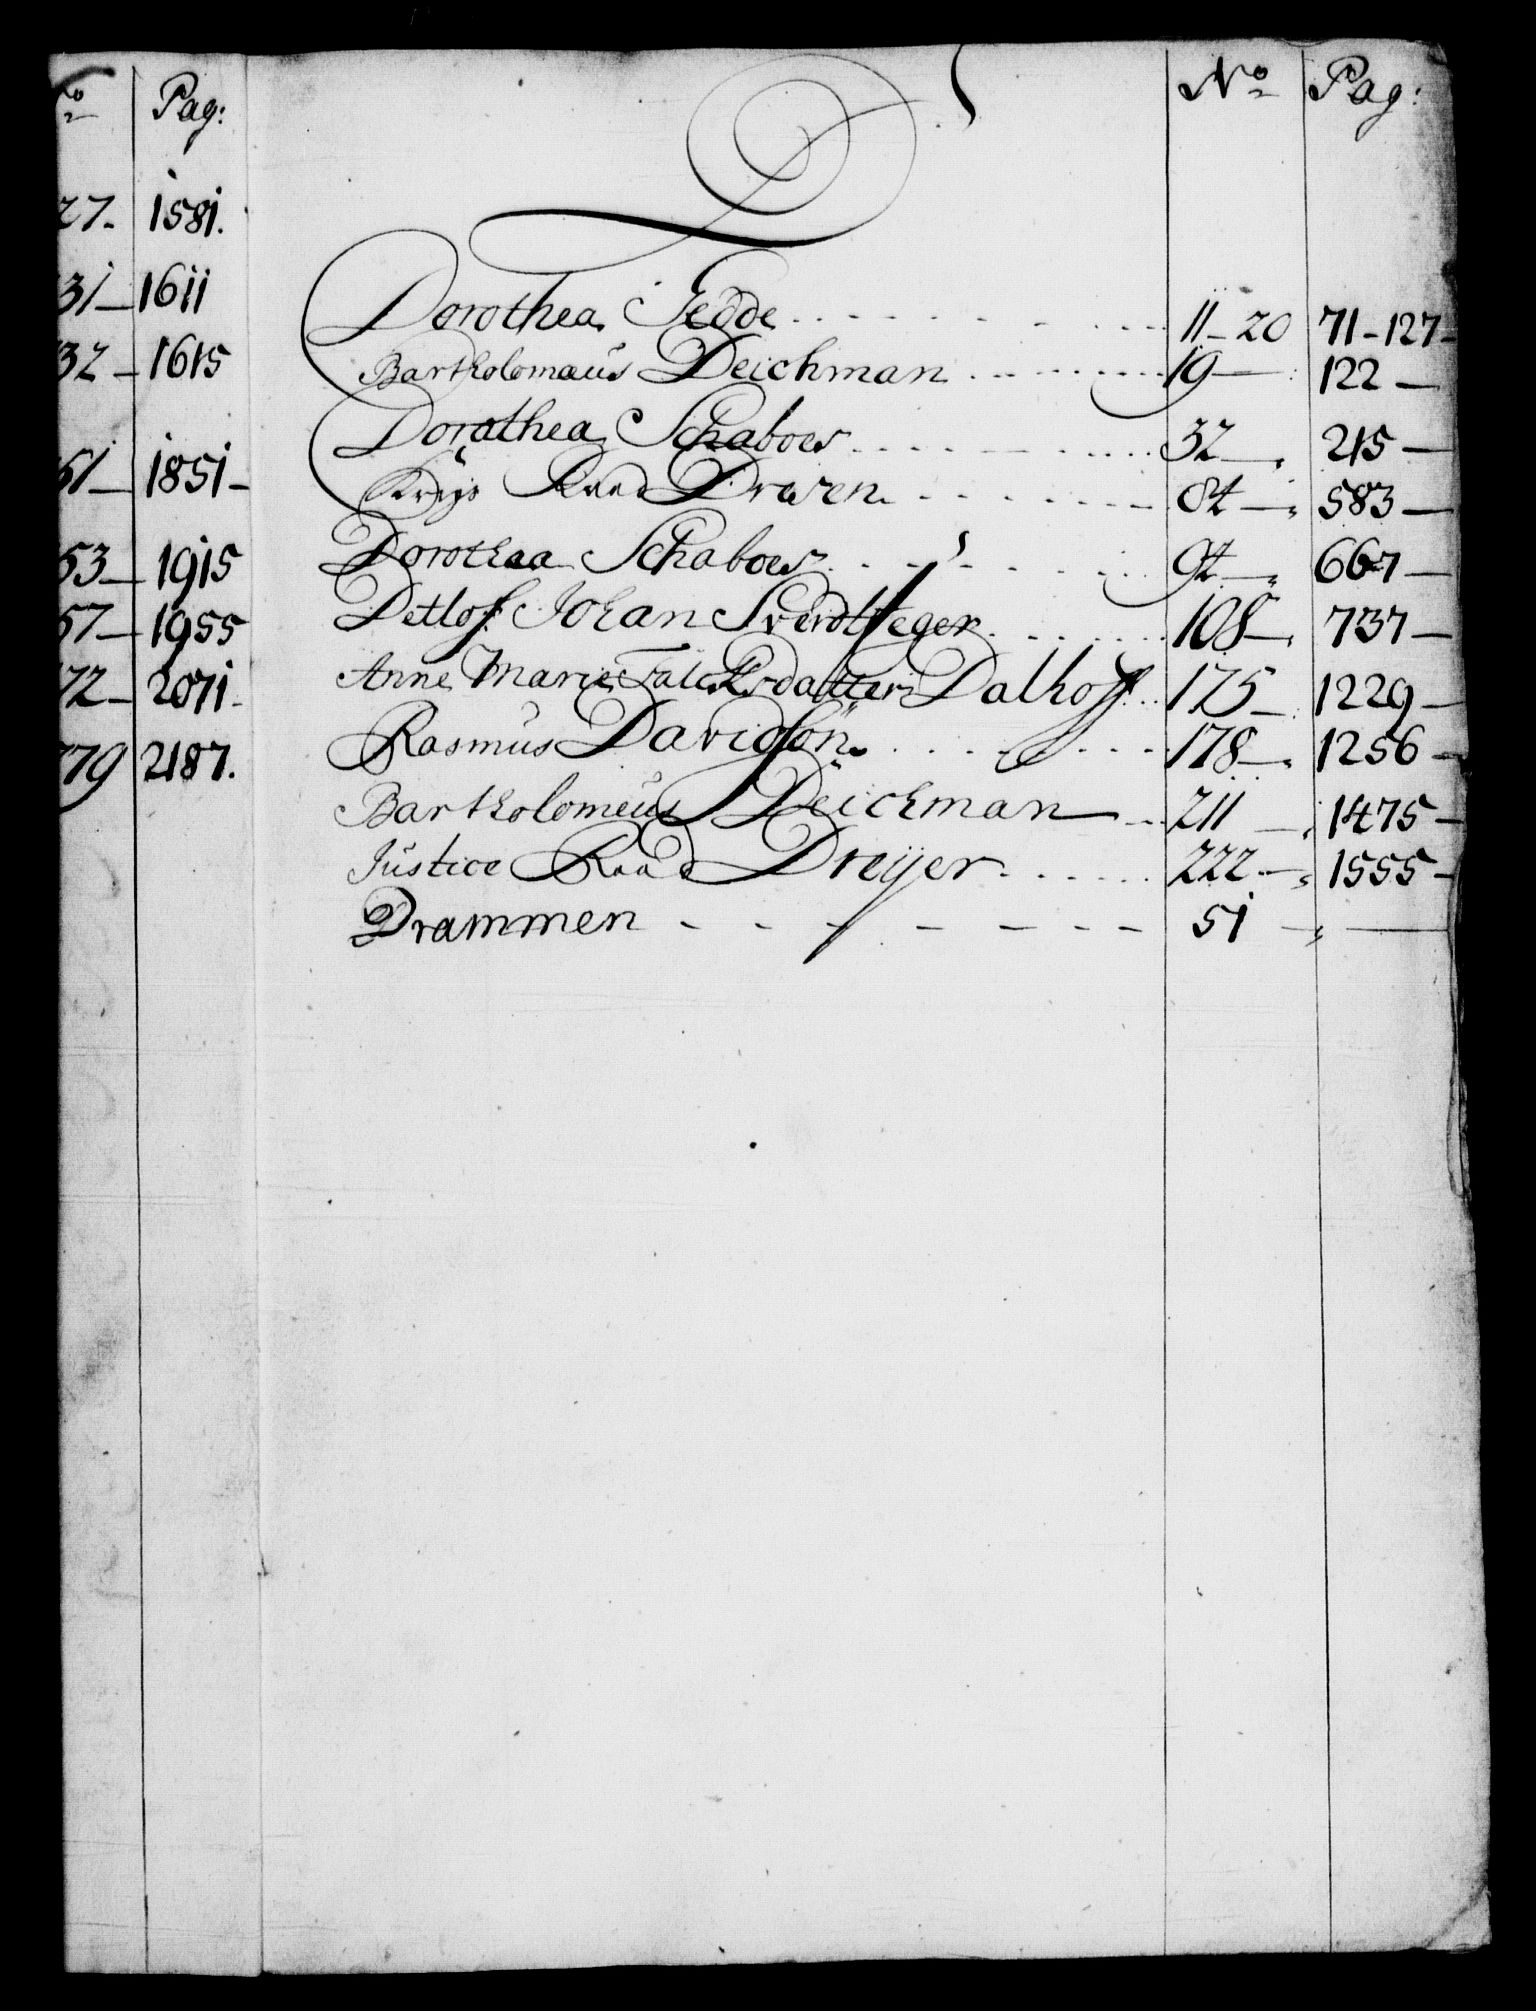 Pag:
27. 1581.
31 — 1611
32 — 1615
51 — 1851 —
53 — 1915
57 — 1955
72 — 2071.
779 2187.
D
No Pag:
Dorothea Gedde 11 — 20 71 — 127 —
Bartholomæus Deichman 19 — 122 —
Dorothea Schaboes 32 — 215 —
Krigs Raad Drasen 84 — 583 —
Dorothea Schaboes 94 — 667 —
Detlof Johan Sverdtfeger 108 — 737 —
Anne Marie Falcksdatter Dalhoff 175 — 1229 —
Rasmus Davidsøn 178 — 1256 —
Bartholomeus Deichman 211 — 1475 —
Justice Raad Dreyer 222 — 1555 —
Drammen 51 —